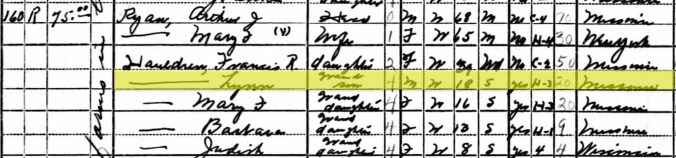 160 R 75.00 Ryan, Arthur J Head 0 M W 68 M No C-4 70 Missouri
— Mary F (V) Wife 1 F W 65 M No H-4 30 New York
Francis R. daughter 2 F W No C-2 50 Missouri
— Lynn grand son 4 M W 18 S yes H-3 20 Missouri
— Mary F grand daughter 4 F W 16 S yes H-2 20 Missouri
— Barbara grand daughter 4 F W 13 S yes H-1 9 Missouri
— Judith grand daughter 4 F W 8 S yes 4 4 Wisconsin